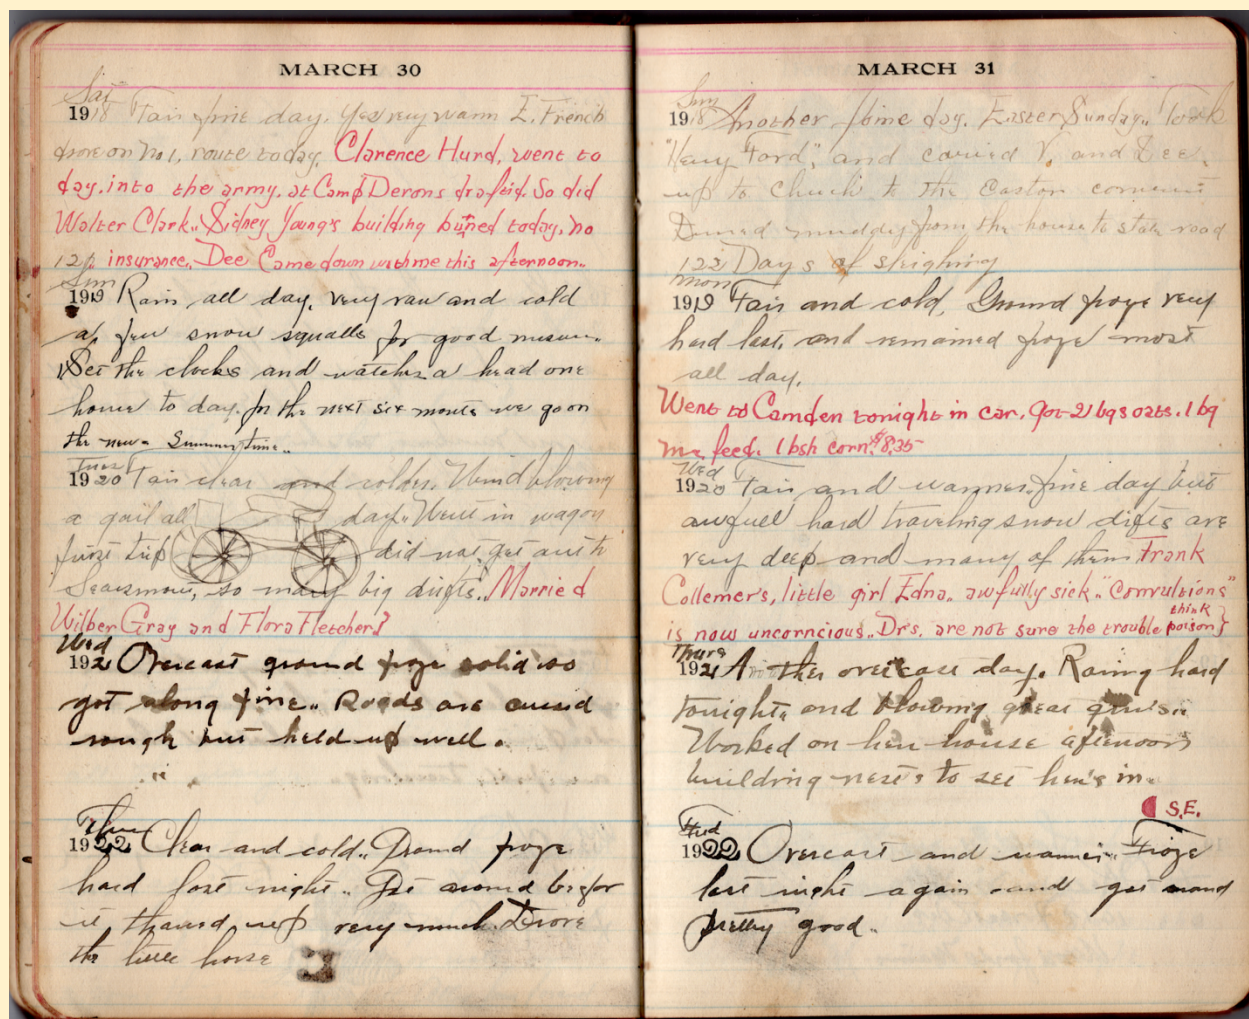 MARCH 30
Sat
1918 Fair fine day. Yes very warm E. French
drove on No 1, route today. Clarence Hurd, went to
day, into the army, at Camp Devens drafeid. So did
Walter Clark.. Sidney Young's building burned today, no
121 insurance.. Dee Came down with me this afternoon..
Sun
1919 Rain all day, very raw and cold
a few snow squalls for good
Set the clocks and watches a head one
houre to day. for the next six monts we go on
the new Summer time..
Tues
1920 Fair clear and colder. Wind blowing
a gail all day.. Went in wagon
furst trip did not get out to
Searsmont, so many big drifts.. Married
Wilber Gray and Flora Fletcher.}
Wed
1921 Overcast ground froze solid so
got along fine.. Roads are
rough but held up well.
Thur
1922 Clear and cold.. Ground froze
hard last night.. Got around befor
it thawed up very much. Drove
the little horse
MARCH 31
Sun
1918 Another fine day. Easter Sunday.. Took
"Henry Ford", and carried V. and Dee.
up to Church to the Easton
muddy from the house to state road
122 Days of sleighing
Mon
1919 Fair and cold, Ground froze very
hard last, and remained froze most
all day.
Went to Camden tonight in car. Got 2 bgs oats. 1 bg
feed. 1 bsh corn. $8.35
Wed
1920 Fair and warmer. fine day but
awfull hard traveling snow difts are
very deep and many of them Frank
Collemer's, little girl Edna.. awfully sick.. "Convulsions"
is now uncorncious.. Dr's. are not sure the trouble think poison}
Thurs
1921 Another overcast day. Raing hard
tonight, and blowing great guns..
Worked on hen house afternoon
building nest's to set hen's in.
S.E.
1922 Overcast and warmer.. Froze
last night again and got around
pretty good..